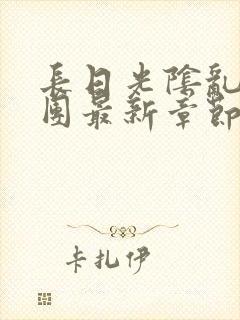 長日光陰亂
團最新章節
卡扎伊